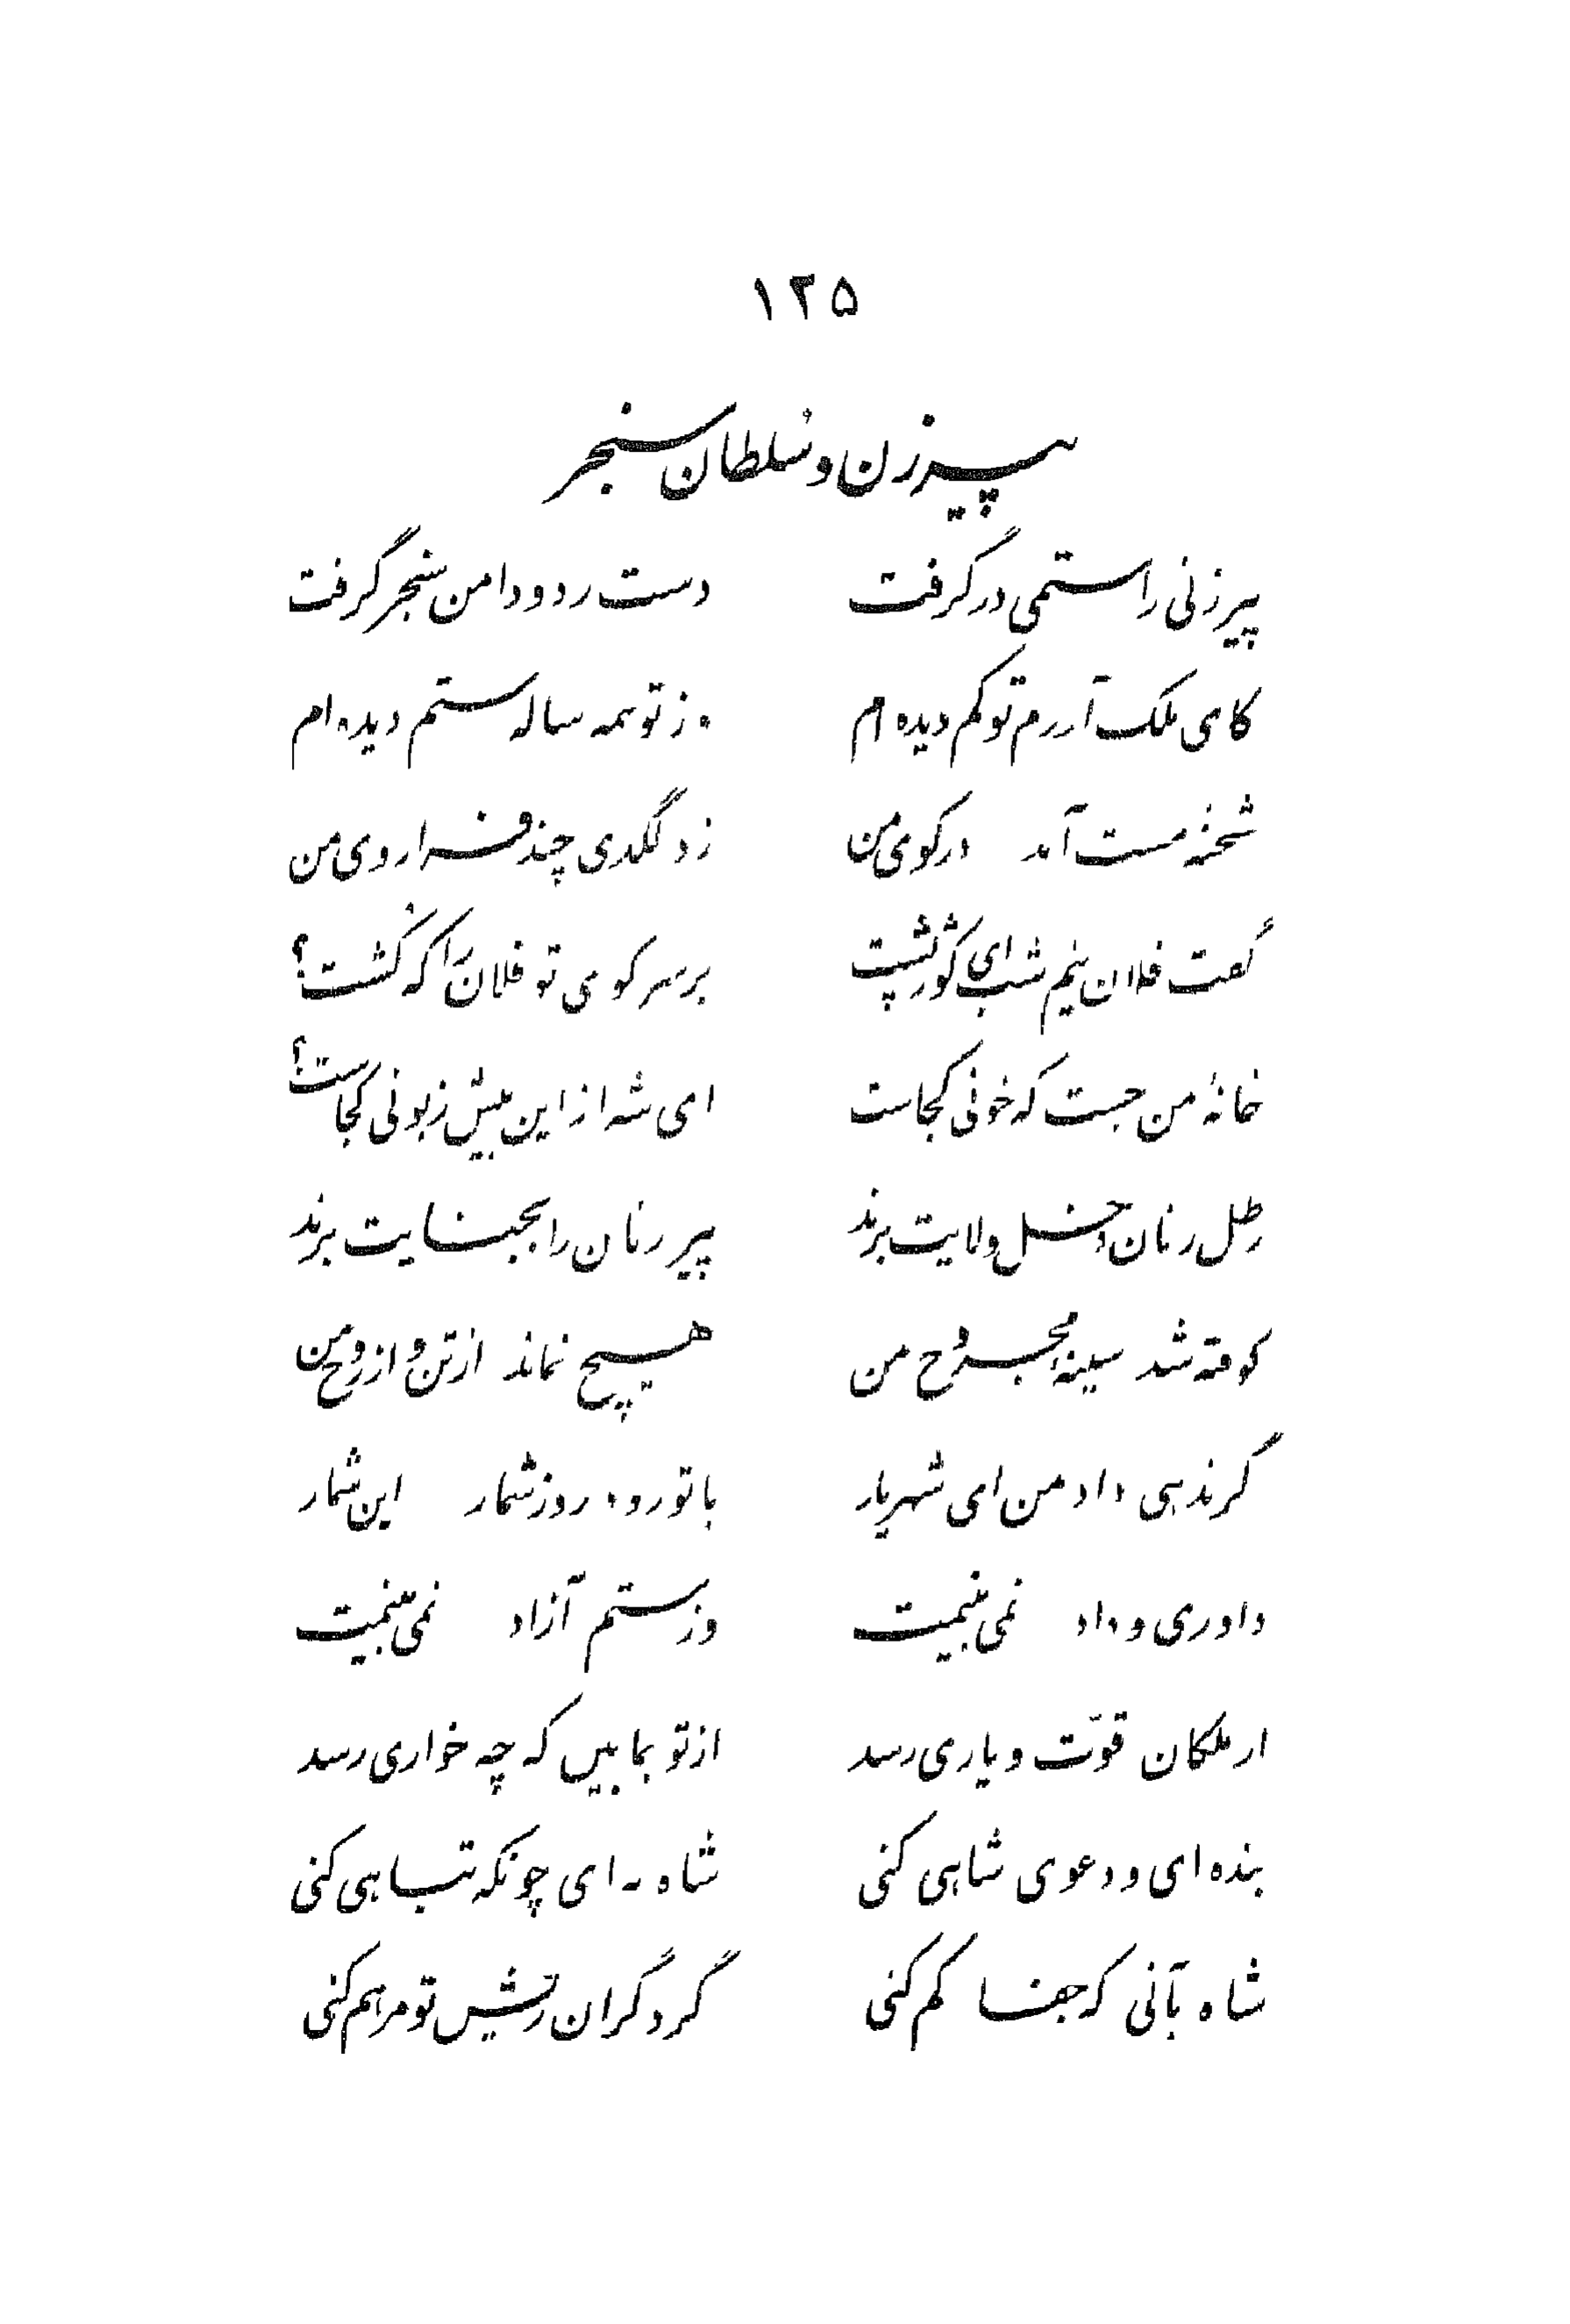 ۱۲۵
پیرزن و سُلطان سنجر
پیرزنی را ستمی درگرفت دست زد و دامن سنجر گرفت
کای ملک آزرم تو کم دیده ام وز تو همه ساله ستم دیده ام
شحنهٔ مست آمد در کوی من زد لگدی چند فرا روی من
گفت فلان نیم شب ای کوژ پشت بر سر کوی تو فلان را که کُشت؟
خانهٔ من جست که خونی کجاست ای شه از این بیش زبونی کجاست؟
رطل زنان دخل ولایت برند پیرزنان را بجنایت برند
کوفته شد سینهٔ مجروح من هیچ نماند از تن و از روح من
گر ندهی داد من ای شهریار با تو رود روز شمار این شمار
داوری و داد نمی بینمت وز ستم آزاد نمی بینمت
از ملکان قوّت و یاری رسد از تو بما بین که چه خواری رسد
بنده ای و دعوی شاهی کنی شاه نه ای چونکه تباهی کنی
شاه بآنی که جفا کم کنی گر دگران ریش تو مرهم کنی